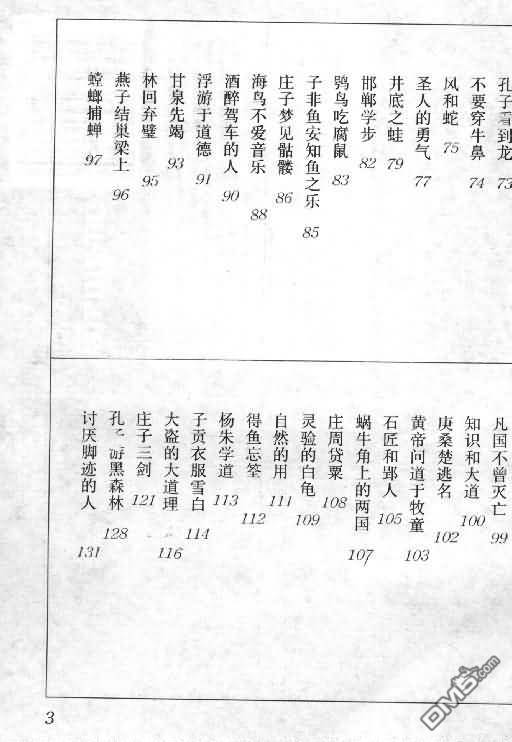 孔子看到龙 73
不要穿牛鼻 74
风和蛇 75
圣人的勇气 77
井底之蛙 79
邯郸学步 82
鸮鸟吃腐鼠 83
子非鱼安知鱼之乐 85
庄子梦见骷髅 86
海鸟不爱音乐 88
酒醉驾车的人 90
浮游于道德 91
甘泉先竭 93
林回弃璧 95
燕子结巢梁上 96
螳螂捕蝉 97
凡国不曾灭亡 99
知识和大道 100
庚桑楚逃名 102
黄帝问道于牧童 103
石匠和郢人 105
蜗牛角上的两国 107
庄周贷粟 108
灵验的白龟 109
自然的用 111
得鱼忘筌 112
杨朱学道 113
子贡衣服雪白 114
大盗的大道理 116
庄子三剑 121
孔子游黑森林 128
讨厌脚迹的人 131
3
DM5.com